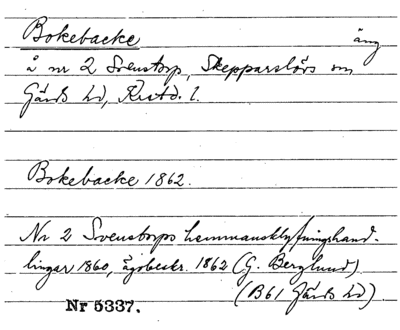 Bokebacke äng
å nr 2 Svenstorp, Skepparslövs sn
Gärds hd, Krstd. l.
Bokebacke 1862.
Nr 2 Svenstorps hemmansklyfningshand-
lingar 1860, ägobeskr. 1862 (G. Berglund)
(B61 Gärds hd)
Nr 5337.